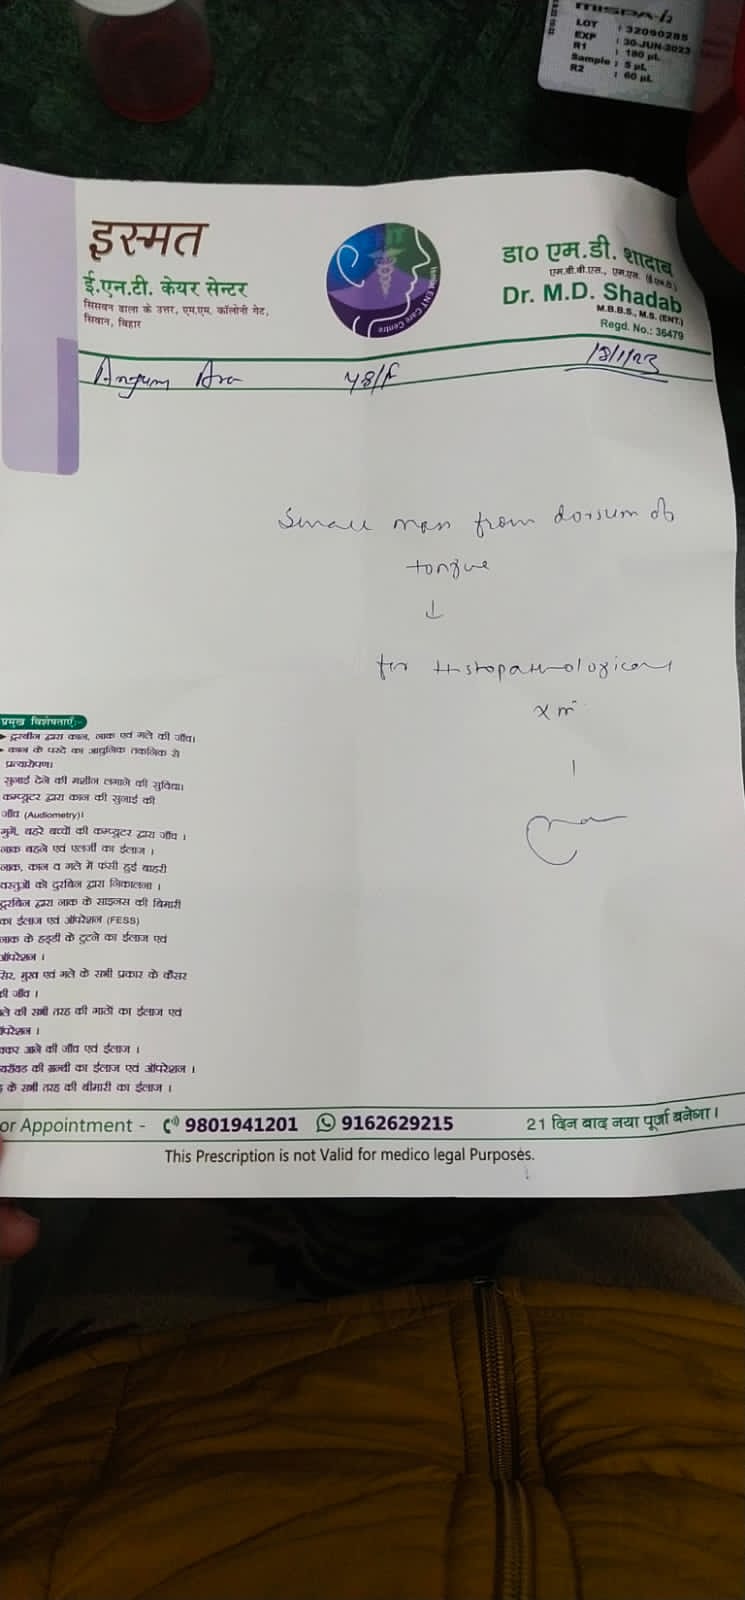 MISPA-i2
LOT : 32090285
EXP : 30-JUN-2023
R1 : 180 µL
Sample : 5 µL
R2 : 60 µL
इस्मत
ई.एन.टी. केयर सेन्टर
सिसवन ढाला के उत्तर, एम.एम. कॉलोनी गेट,
सिवान, बिहार
ENT Care Centre
डा० एम.डी. शादाब
एम.बी.बी.एस., एम.एस. (ई.एन.टी.)
Dr. M.D. Shadab
M.B.B.S., M.S. (ENT.)
Regd. No.: 36479
Anjum Ara 48/F 18/1/23
Small mass from dorsum of
tongue
↓
for Histopathological
xm
प्रमुख विशेषताएँ:-
दूरबीन द्वारा कान, नाक एवं गले की जाँच।
कान के परदे का आधुनिक तकनिक से
प्रत्यारोपण।
सुनाई देने की मशीन लगाने की सुविधा।
कम्प्यूटर द्वारा कान की सुनाई की
जाँच (Audiometry)।
गुमें, बहरे बच्चों की कम्प्यूटर द्वारा जाँच ।
नाक बहने एवं एलर्जी का ईलाज ।
नाक, कान व गले में फंसी हुई बाहरी
वस्तुओं को दुरबिन द्वारा निकालना ।
दूरबिन द्वारा नाक के साइनस की बिमारी
का ईलाज एवं ऑपरेशन (FESS)
नाक के हड्डी के टुटने का ईलाज एवं
ऑपरेशन ।
सिर, मुख एवं गले के सभी प्रकार के कैंसर
की जाँच ।
गले की सभी तरह की गाठों का ईलाज एवं
ऑपरेशन ।
चक्कर आने की जाँच एवं ईलाज ।
की ग्रन्थी का ईलाज एवं ऑपरेशन ।
के सभी तरह की बीमारी का ईलाज ।
or Appointment - 9801941201 9162629215 21 दिन बाद नया पूर्जा बनेगा।
This Prescription is not Valid for medico legal Purposes.